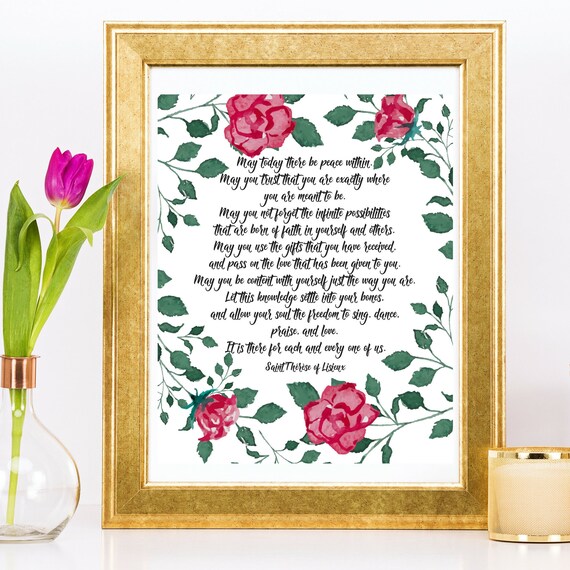 May today there be peace within.
May you trust that you are exactly where
you are meant to be.
May you not forget the infinite possibilities
that are born of faith in yourself and others.
May you use the gifts that you have received,
and pass on the love that has been given to you.
May you be content with yourself just the way you are.
Let this knowledge settle into your bones,
and allow your soul the freedom to sing, dance,
praise, and love.
It is there for each and every one of us.
Saint Thérise of Lisieux